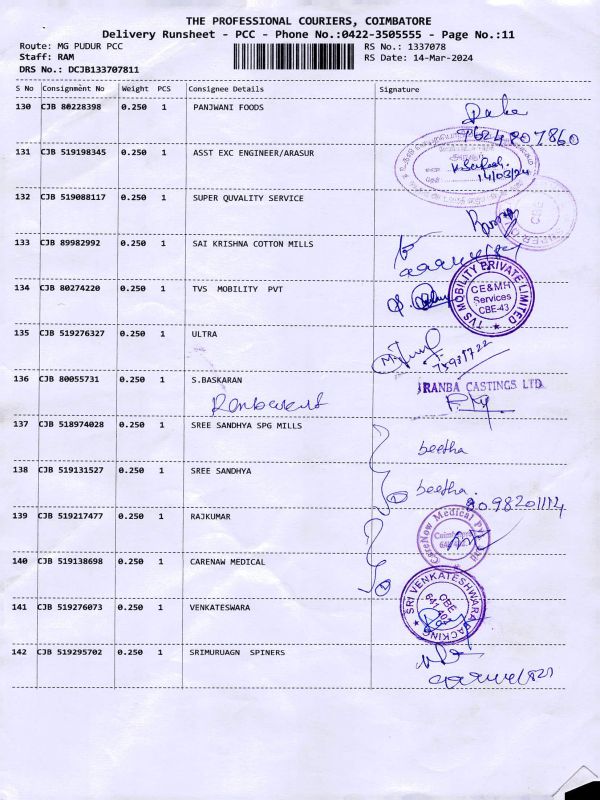 THE PROFESSIONAL COURIERS, COIMBATORE
Delivery Runsheet - PCC - Phone No.:0422-3505555 - Page No.:11
Route: MG PUDUR PCC
RS No.: 1337078
Staff: RAM
RS Date: 14-Mar-2024
DRS No.: DCJB133707811
S No Consignment No Weight PCS Consignee Details Signature
130 CJB 80228398 0.250 1 PANJWANI FOODS
9624807860
131 CJB 519198345 0.250 1 ASST EXC ENGINEER/ARASUR
14/03/24
132 CJB 519088117 0.250 1 SUPER QUVALITY SERVICE
CBE
133 CJB 89982992 0.250 1 SAI KRISHNA COTTON MILLS
134 CJB 80274220 0.250 1 TVS MOBILITY PVT
TVS MOBILITY PRIVATE LIMITED
CE&MH
Services
CBE-43
135 CJB 519276327 0.250 1 ULTRA
136 CJB 80055731 0.250 1 S.BASKARAN
RANBA CASTINGS LTD
137 CJB 518974028 0.250 1 SREE SANDHYA SPG MILLS
beetha
138 CJB 519131527 0.250 1 SREE SANDHYA
beetha.
139 CJB 519217477 0.250 1 RAJKUMAR
CareNow Medical
140 CJB 519138698 0.250 1 CARENAW MEDICAL
141 CJB 519276073 0.250 1 VENKATESWARA
SRI VENKATESHWARA PACKING
CBE
142 CJB 519295702 0.250 1 SRIMURUAGN SPINERS